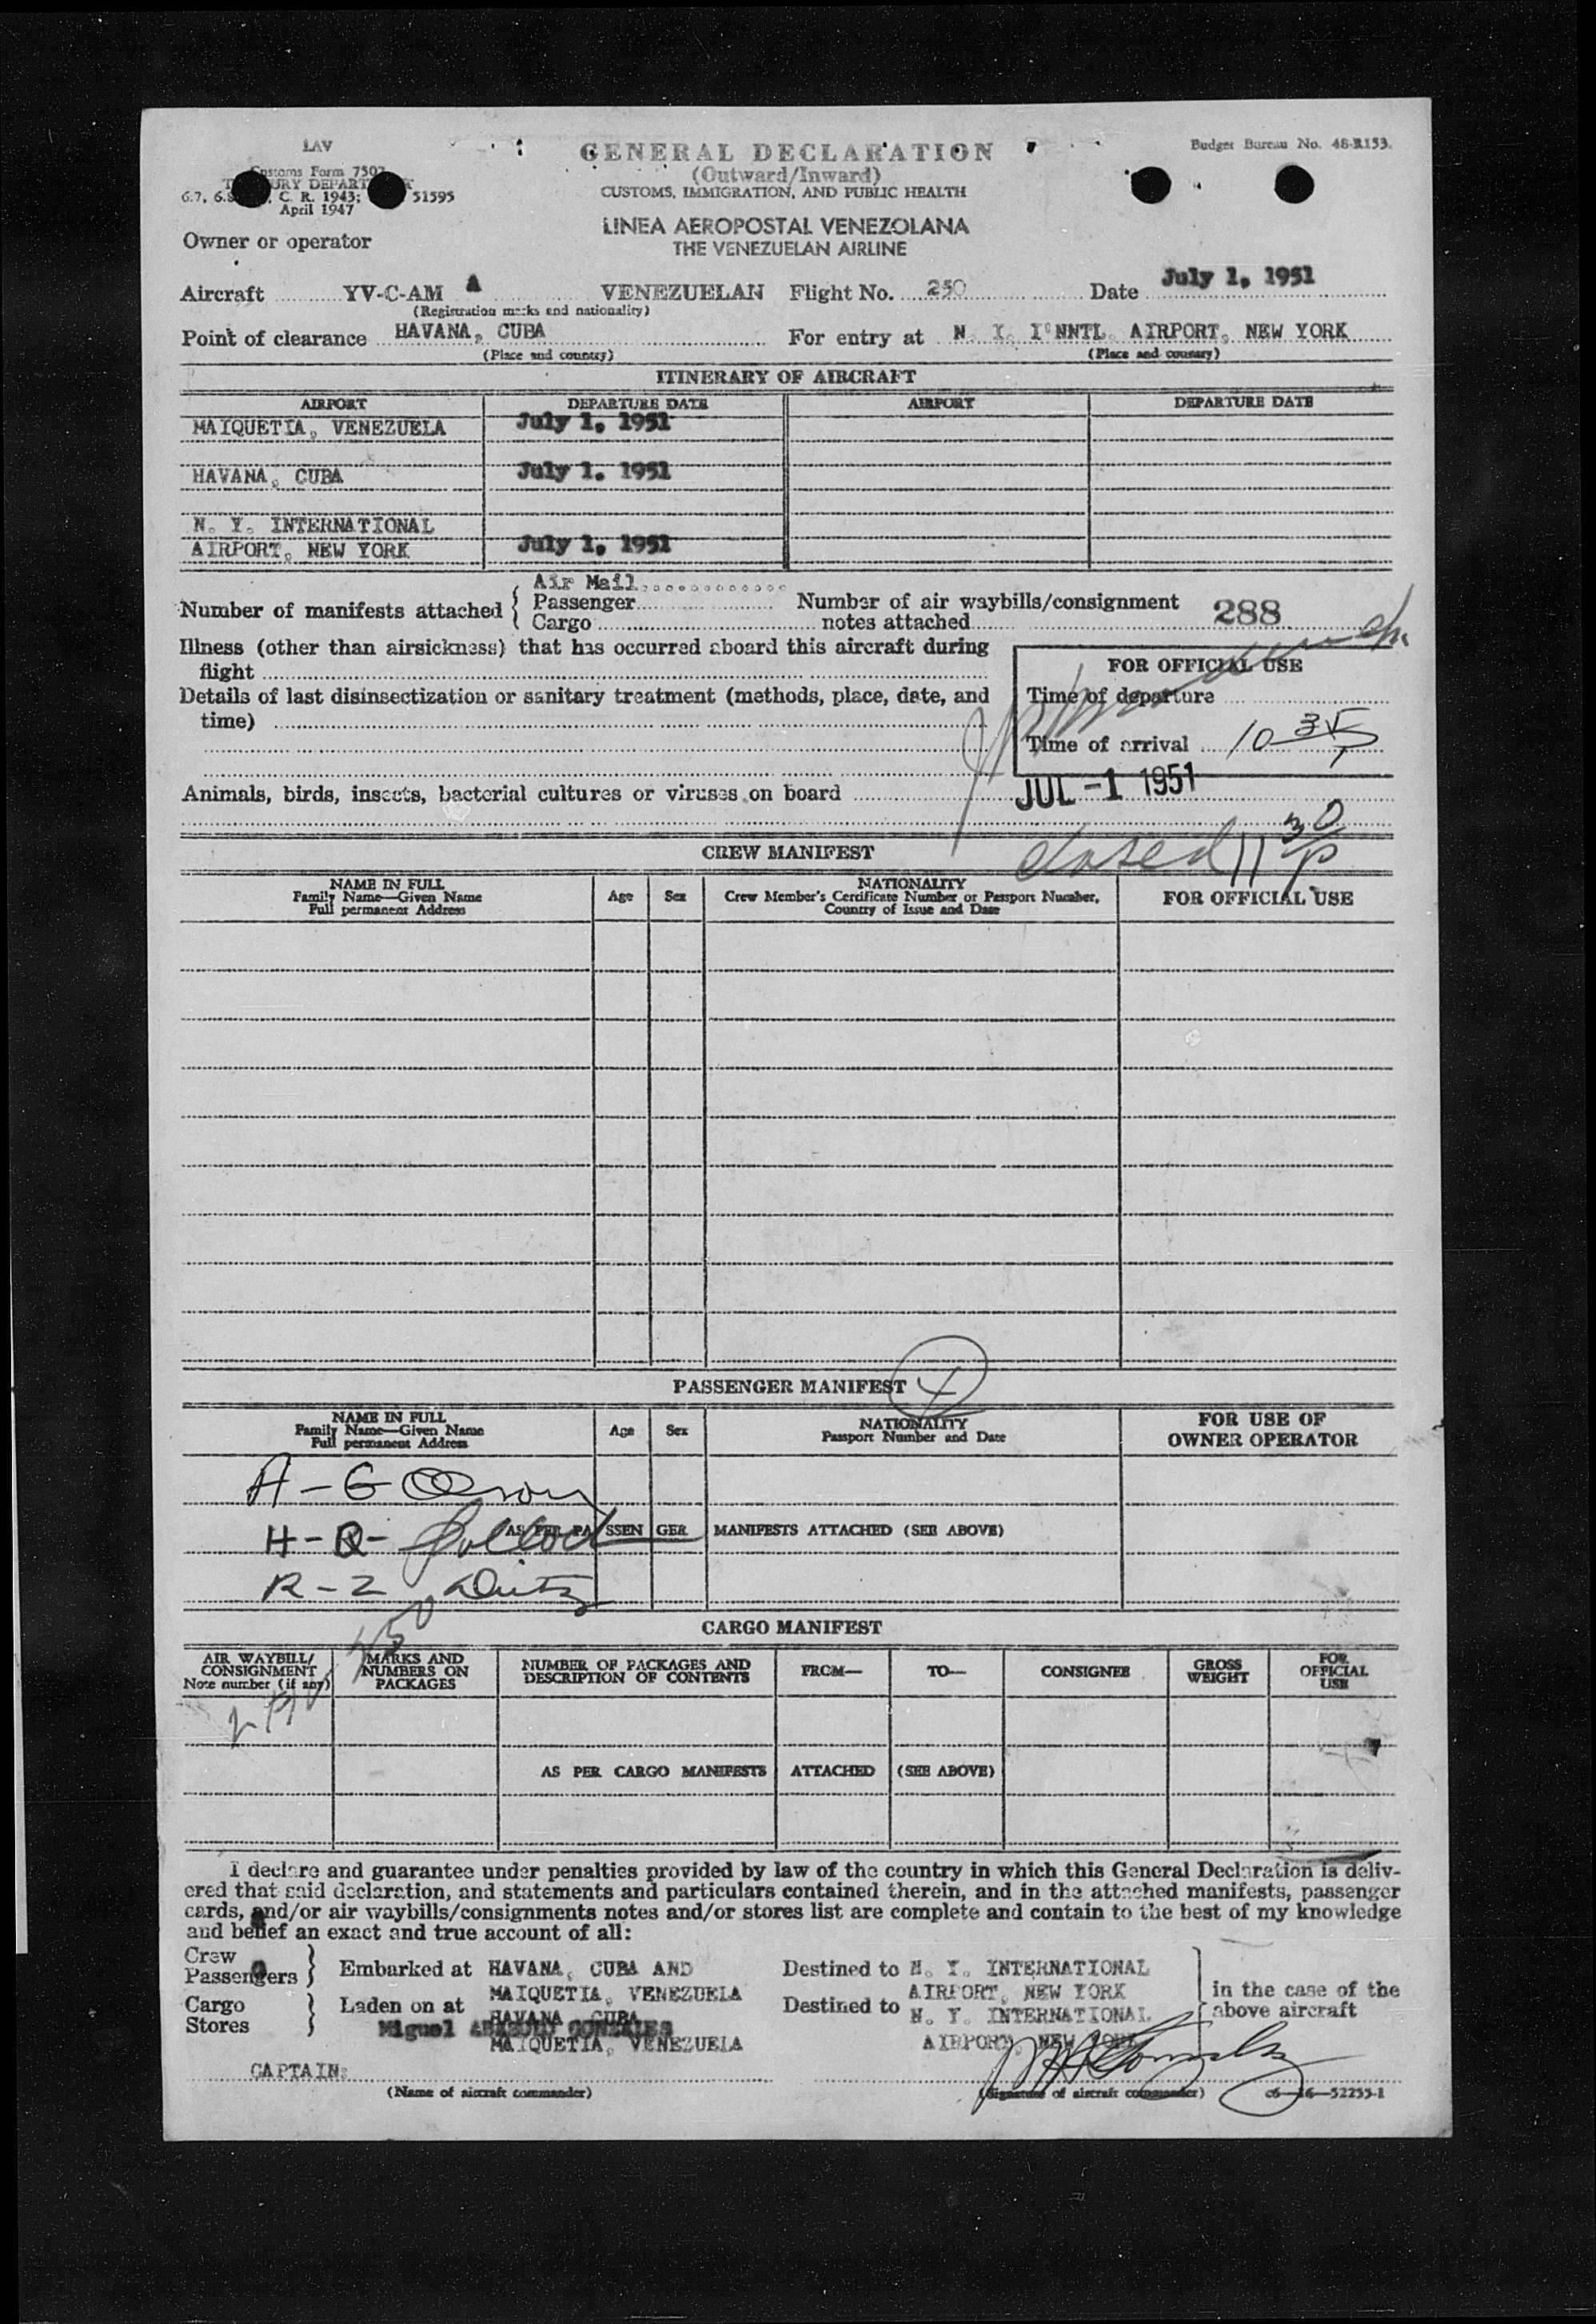 LAV
Customs Form 7507
TREASURY DEPARTMENT
6.7, 6.8, C. R. 1943; 51595
April 1947
GENERAL DECLARATION
(Outward/Inward)
CUSTOMS, IMMIGRATION, AND PUBLIC HEALTH
Budget Bureau No. 48-R153.
Owner or operator
LINEA AEROPOSTAL VENEZOLANA
THE VENEZUELAN AIRLINE
Aircraft YV-C-AM A VENEZUELAN Flight No. 250 Date July 1, 1951
(Registration marks and nationality)
Point of clearance HAVANA, CUBA For entry at N. Y. I'NNTL AIRPORT, NEW YORK
(Place and country) (Place and country)
ITINERARY OF AIRCRAFT
AIRPORT DEPARTURE DATE AIRPORT DEPARTURE DATE
MAIQUETIA, VENEZUELA July 1, 1951
HAVANA, CUBA July 1, 1951
N. Y. INTERNATIONAL
AIRPORT, NEW YORK July 1, 1951
Number of manifests attached { Air Mail
Passenger
Cargo
Number of air waybills/consignment
notes attached 288
Illness (other than airsickness) that has occurred aboard this aircraft during
flight
Details of last disinsectization or sanitary treatment (methods, place, date, and
time)
FOR OFFICIAL USE
Time of departure
Time of arrival 10 35 P
JUL -1 1951
Animals, birds, insects, bacterial cultures or viruses on board
closed 11 30 P
CREW MANIFEST
NAME IN FULL
Family Name—Given Name
Full permanent Address
Age
Sex
NATIONALITY
Crew Member's Certificate Number or Passport Number,
Country of Issue and Date
FOR OFFICIAL USE
PASSENGER MANIFEST
NAME IN FULL
Family Name—Given Name
Full permanent Address
Age
Sex
NATIONALITY
Passport Number and Date
FOR USE OF
OWNER OPERATOR
A - G
H - Q - Pollock
AS PER PASSENGER MANIFESTS ATTACHED (SEE ABOVE)
R - Z
CARGO MANIFEST
AIR WAYBILL/
CONSIGNMENT
Note number (if any)
MARKS AND
NUMBERS ON
PACKAGES
NUMBER OF PACKAGES AND
DESCRIPTION OF CONTENTS
FROM—
TO—
CONSIGNEE
GROSS
WEIGHT
FOR
OFFICIAL
USE
AS PER CARGO MANIFESTS ATTACHED (SEE ABOVE)
I declare and guarantee under penalties provided by law of the country in which this General Declaration is deliv-
ered that said declaration, and statements and particulars contained therein, and in the attached manifests, passenger
cards, and/or air waybills/consignments notes and/or stores list are complete and contain to the best of my knowledge
and belief an exact and true account of all:
Crew
Passengers } Embarked at HAVANA, CUBA AND
MAIQUETIA, VENEZUELA
Destined to N. Y. INTERNATIONAL
AIRPORT, NEW YORK
Cargo
Stores } Laden on at HAVANA CUBA
MAIQUETIA, VENEZUELA
Destined to N. Y. INTERNATIONAL
AIRPORT, NEW YORK
in the case of the
above aircraft
Miguel GONZALES
CAPTAIN:
(Name of aircraft commander)
(Signature of aircraft commander) 16—52255-1